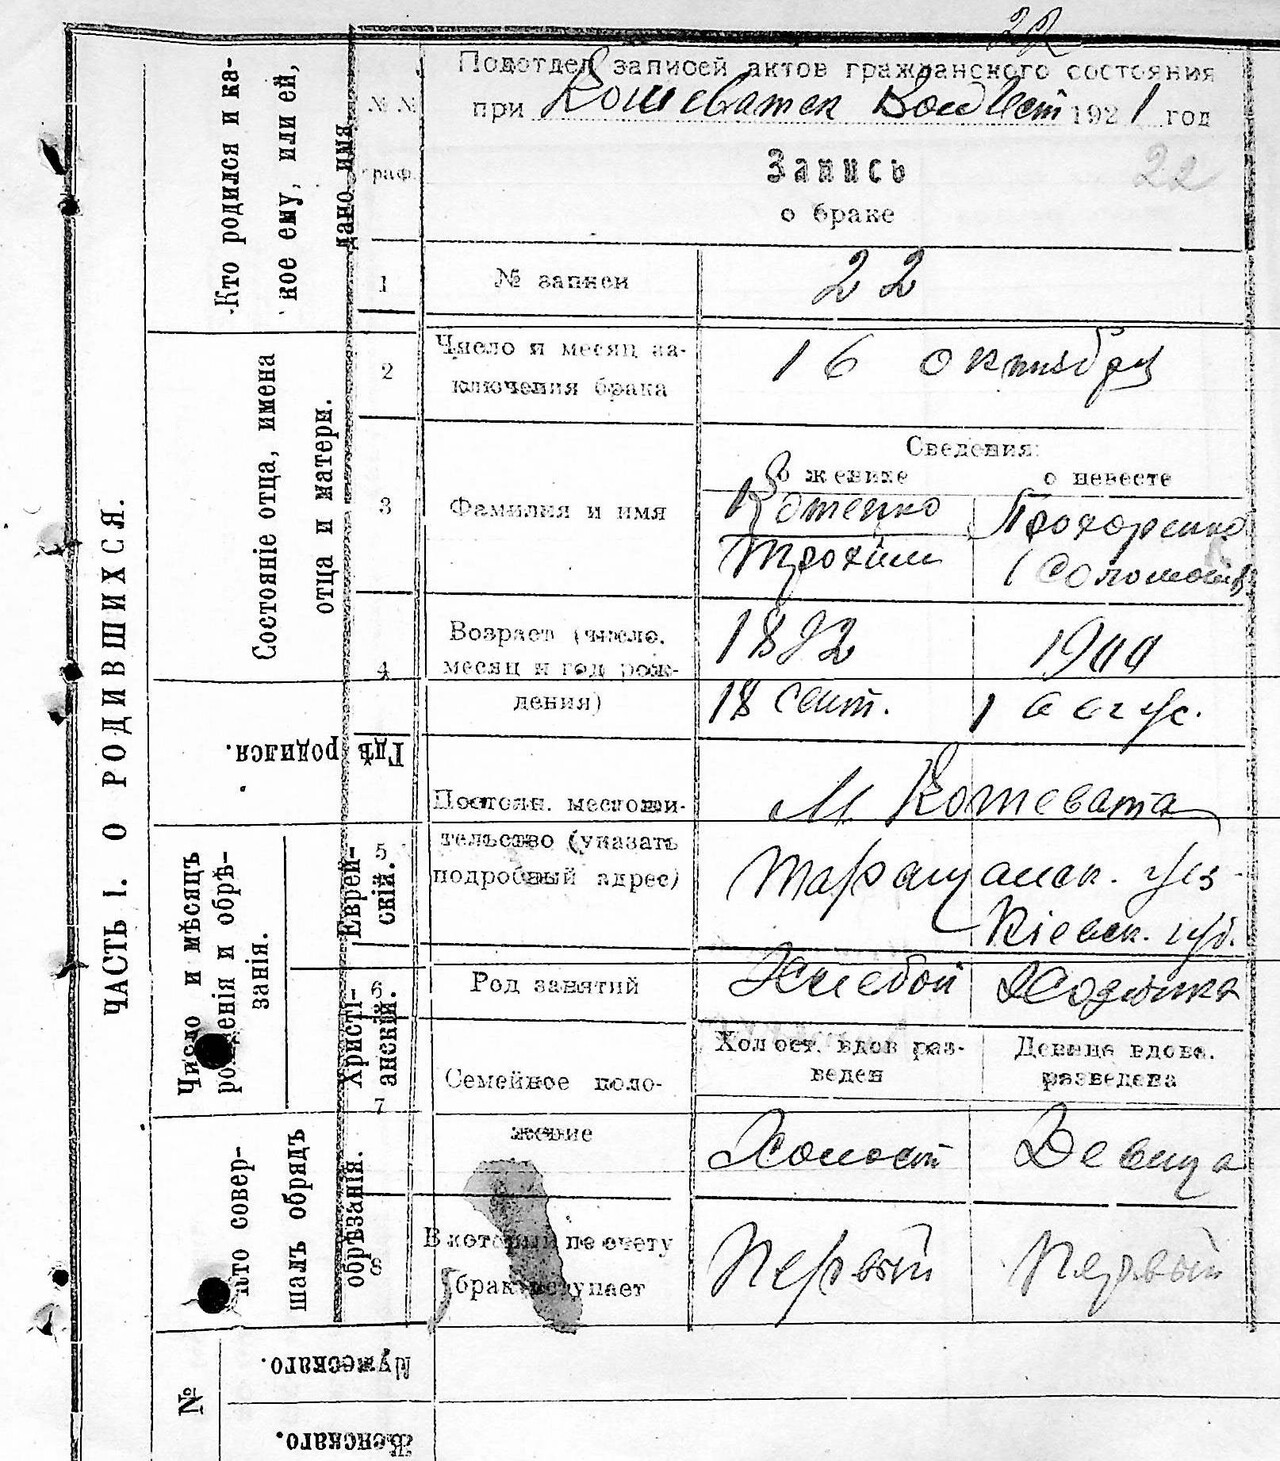 22
Подотдел записей актов гражданского состояния
при Кошеватск Волвест 1921 год
Запись
22
о браке
№ №
граф.
1
№ записи
22
2
Число и месяц за-
ключения брака
16 октября
Сведения:
о женихе
о невесте
3
Фамилия и имя
Котенко
Трохим
Прохоренко
Соломония
4
Возраст (число,
месяц и год рож-
дения)
18 сент.
1900
1 авгус.
5
Постоян. местожи-
тельство (указать
подробный адрес)
М. Кошевата
Таращанск. уез
Кіевск. губ.
6
Род занятий
Хлебой
7
Семейное поло-
жение
Холост. вдов раз-
веден
Девица вдова.
разведена
Холост
Девица
8
В который по счету
брак вступает
Первый
Первый
ЧАСТЬ I. О РОДИВШИХСЯ.
Кто родился и ка-
кое ему, или ей,
дано имя
Состояніе отца, имена
отца и матери.
Гдѣ родился.
Число и мѣсяцъ
рожденія и обрѣ-
занія.
Еврей-
скій.
Христі-
анскій.
Кто совер-
шалъ обрядъ
обрѣзанія.
№
Мужескаго.
Женскаго.